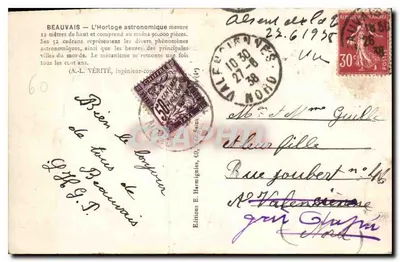 BEAUVAIS — L'Horloge astronomique mesure
12 mètres de haut et comprend au moins 90.000 pièces.
Les 52 cadrans représentent les divers phénomènes
astronomiques, ainsi que les heures des principales
villes du monde. Le mécanisme se remonte une fois
tous les cent ans.
(A.-L. VÉRITÉ, ingénieur
60
Bien le bonjour
de tous de
Beauvais
Editions R. Hermignies, 60
50
VALENCIENNES
10 30
27-6
38
NORD
Absent de
22.6.1938
30c
Mr et Mme Guille
et leur fille
Rue Joubert no 46
A Valenciennes
(Nord)